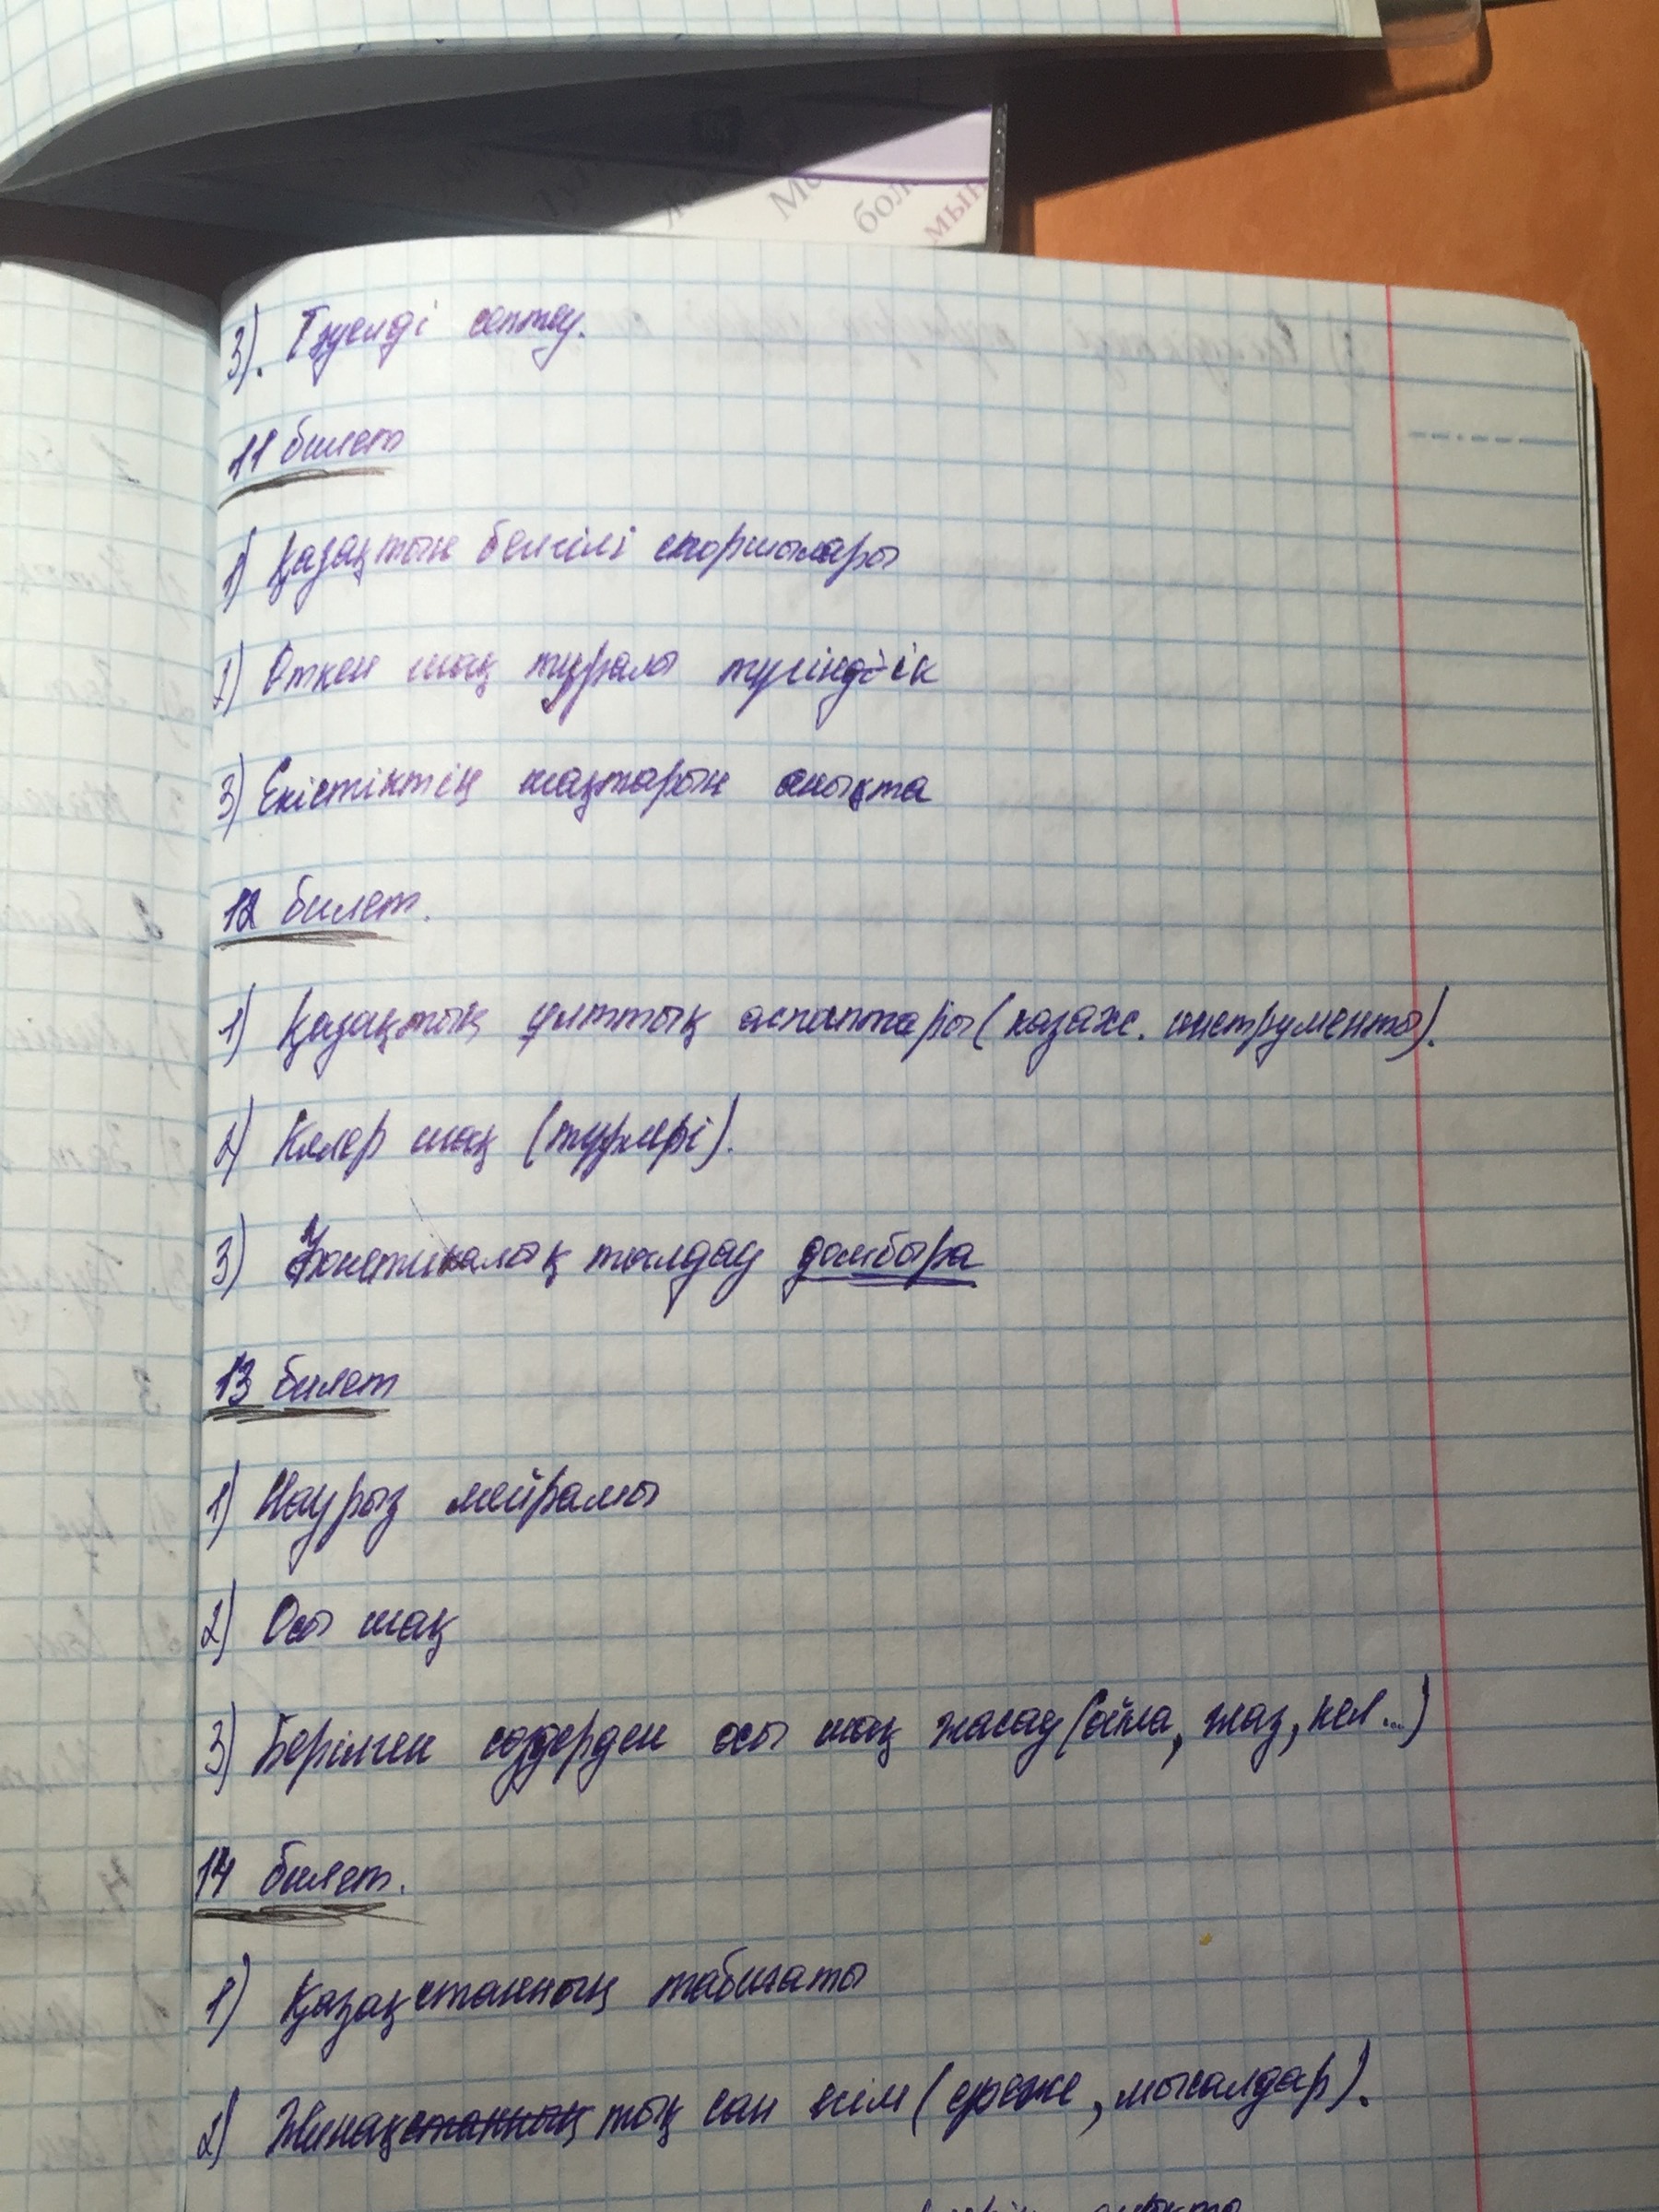 Жа
Мо
бол
мын
3). Тәуелді септеу.
11 билет
1) Қазақтың белгілі спортшылары
2) Өткен шақ туралы түсіндік
3) Етістіктің шақтарын анықта
12 билет.
1) Қазақтың ұлттық аспаптары (казахс. инструменты).
2) Келер шақ (түрлері).
3) Фонетикалық талдау домбыра
13 билет
1) Наурыз мейрамы
2) Осы шақ
3) Берілген сөздерден осы шақ жасау (ойла, жаз, кел...)
14 билет.
1) Қазақстанның табиғаты
2) Жинақтық сан есім (ереже, мысалдар).